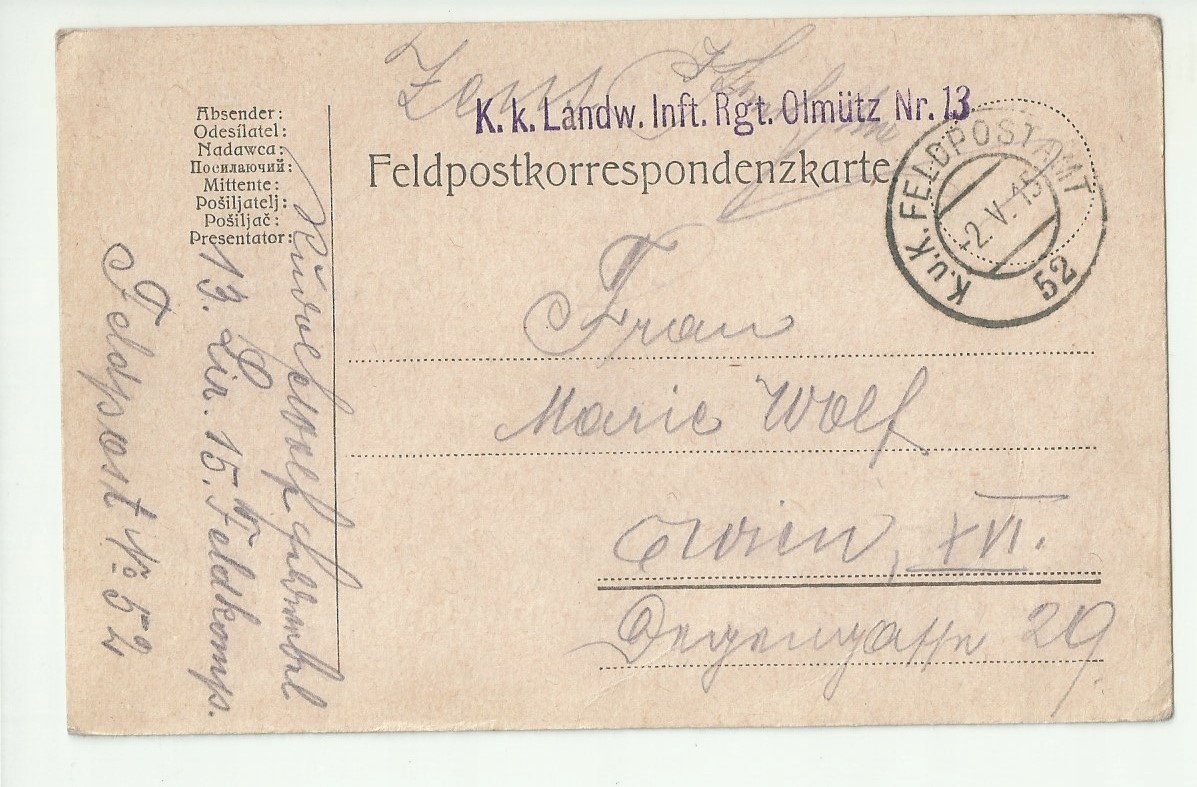 K. k. Landw. Inft. Rgt. Olmütz Nr. 13
Feldpostkorrespondenzkarte
K.u.K. FELDPOSTAMT
-2.V.15
52
Absender:
Odesílatel:
Nadawca:
Посилаючий:
Mittente:
Pošiljatelj:
Pošiljač:
Presentator:
Wolf
13. Lir. 15. Feldkomp.
Feldpost No 52
Frau
Marie Wolf
Wien, XVI.
Degengasse 29.